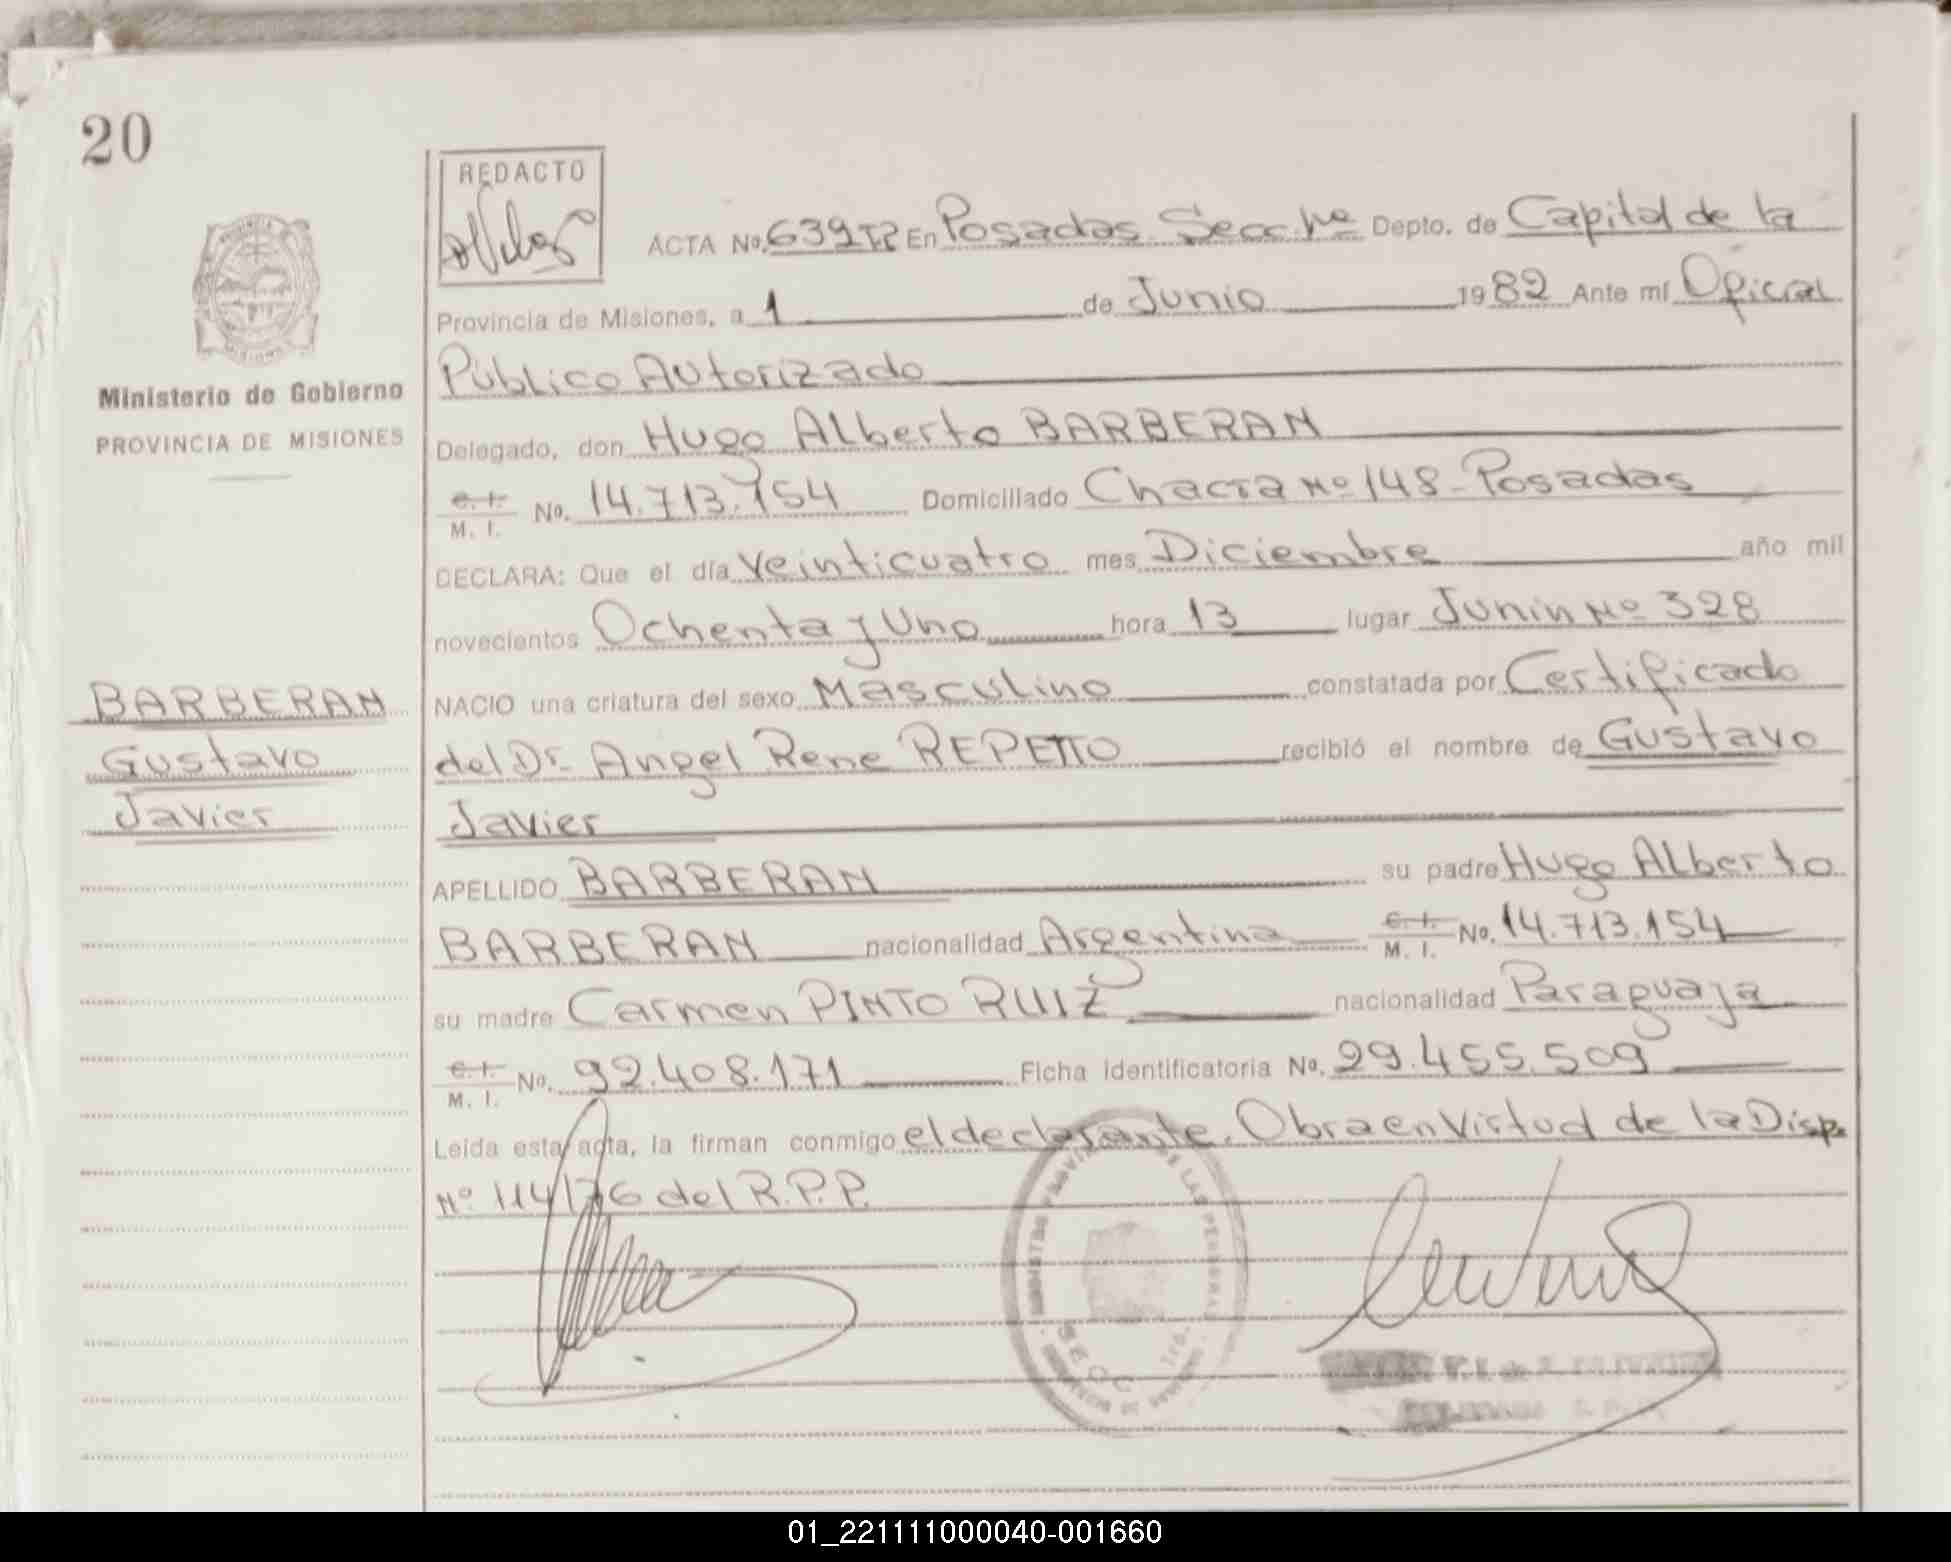 20
REDACTO
ACTA No. 639 T2 En Posadas Secc. 1ª Depto. de Capital de la
Provincia de Misiones, a 1 de Junio 1982 Ante mí Oficial
Público Autorizado
Ministerio de Gobierno
PROVINCIA DE MISIONES
Delegado, don Hugo Alberto BARBERAN
C. I. M. I. No. 14.713.154 Domiciliado Chacra Nº 148 - Posadas
DECLARA: Que el día Veinticuatro mes Diciembre año mil
novecientos Ochenta y Uno hora 13 lugar Junin Nº 328
NACIO una criatura del sexo Masculino constatada por Certificado
del Dr. Angel Rene REPETTO recibió el nombre de Gustavo
Javier
BARBERAN
Gustavo
Javier
APELLIDO BARBERAN su padre Hugo Alberto
BARBERAN nacionalidad Argentina C. I. M. I. No. 14.713.154
su madre Carmen PINTO RUIZ nacionalidad Paraguaya
C. I. M. I. No. 92.408.171 Ficha identificatoria No. 29.455.509
Leída esta acta, la firman conmigo el declarante. Obra en Virtud de la Disp.
Nº 114/76 del R.P.P.
DE LAS PERSONAS
SECC
01_221111000040-001660